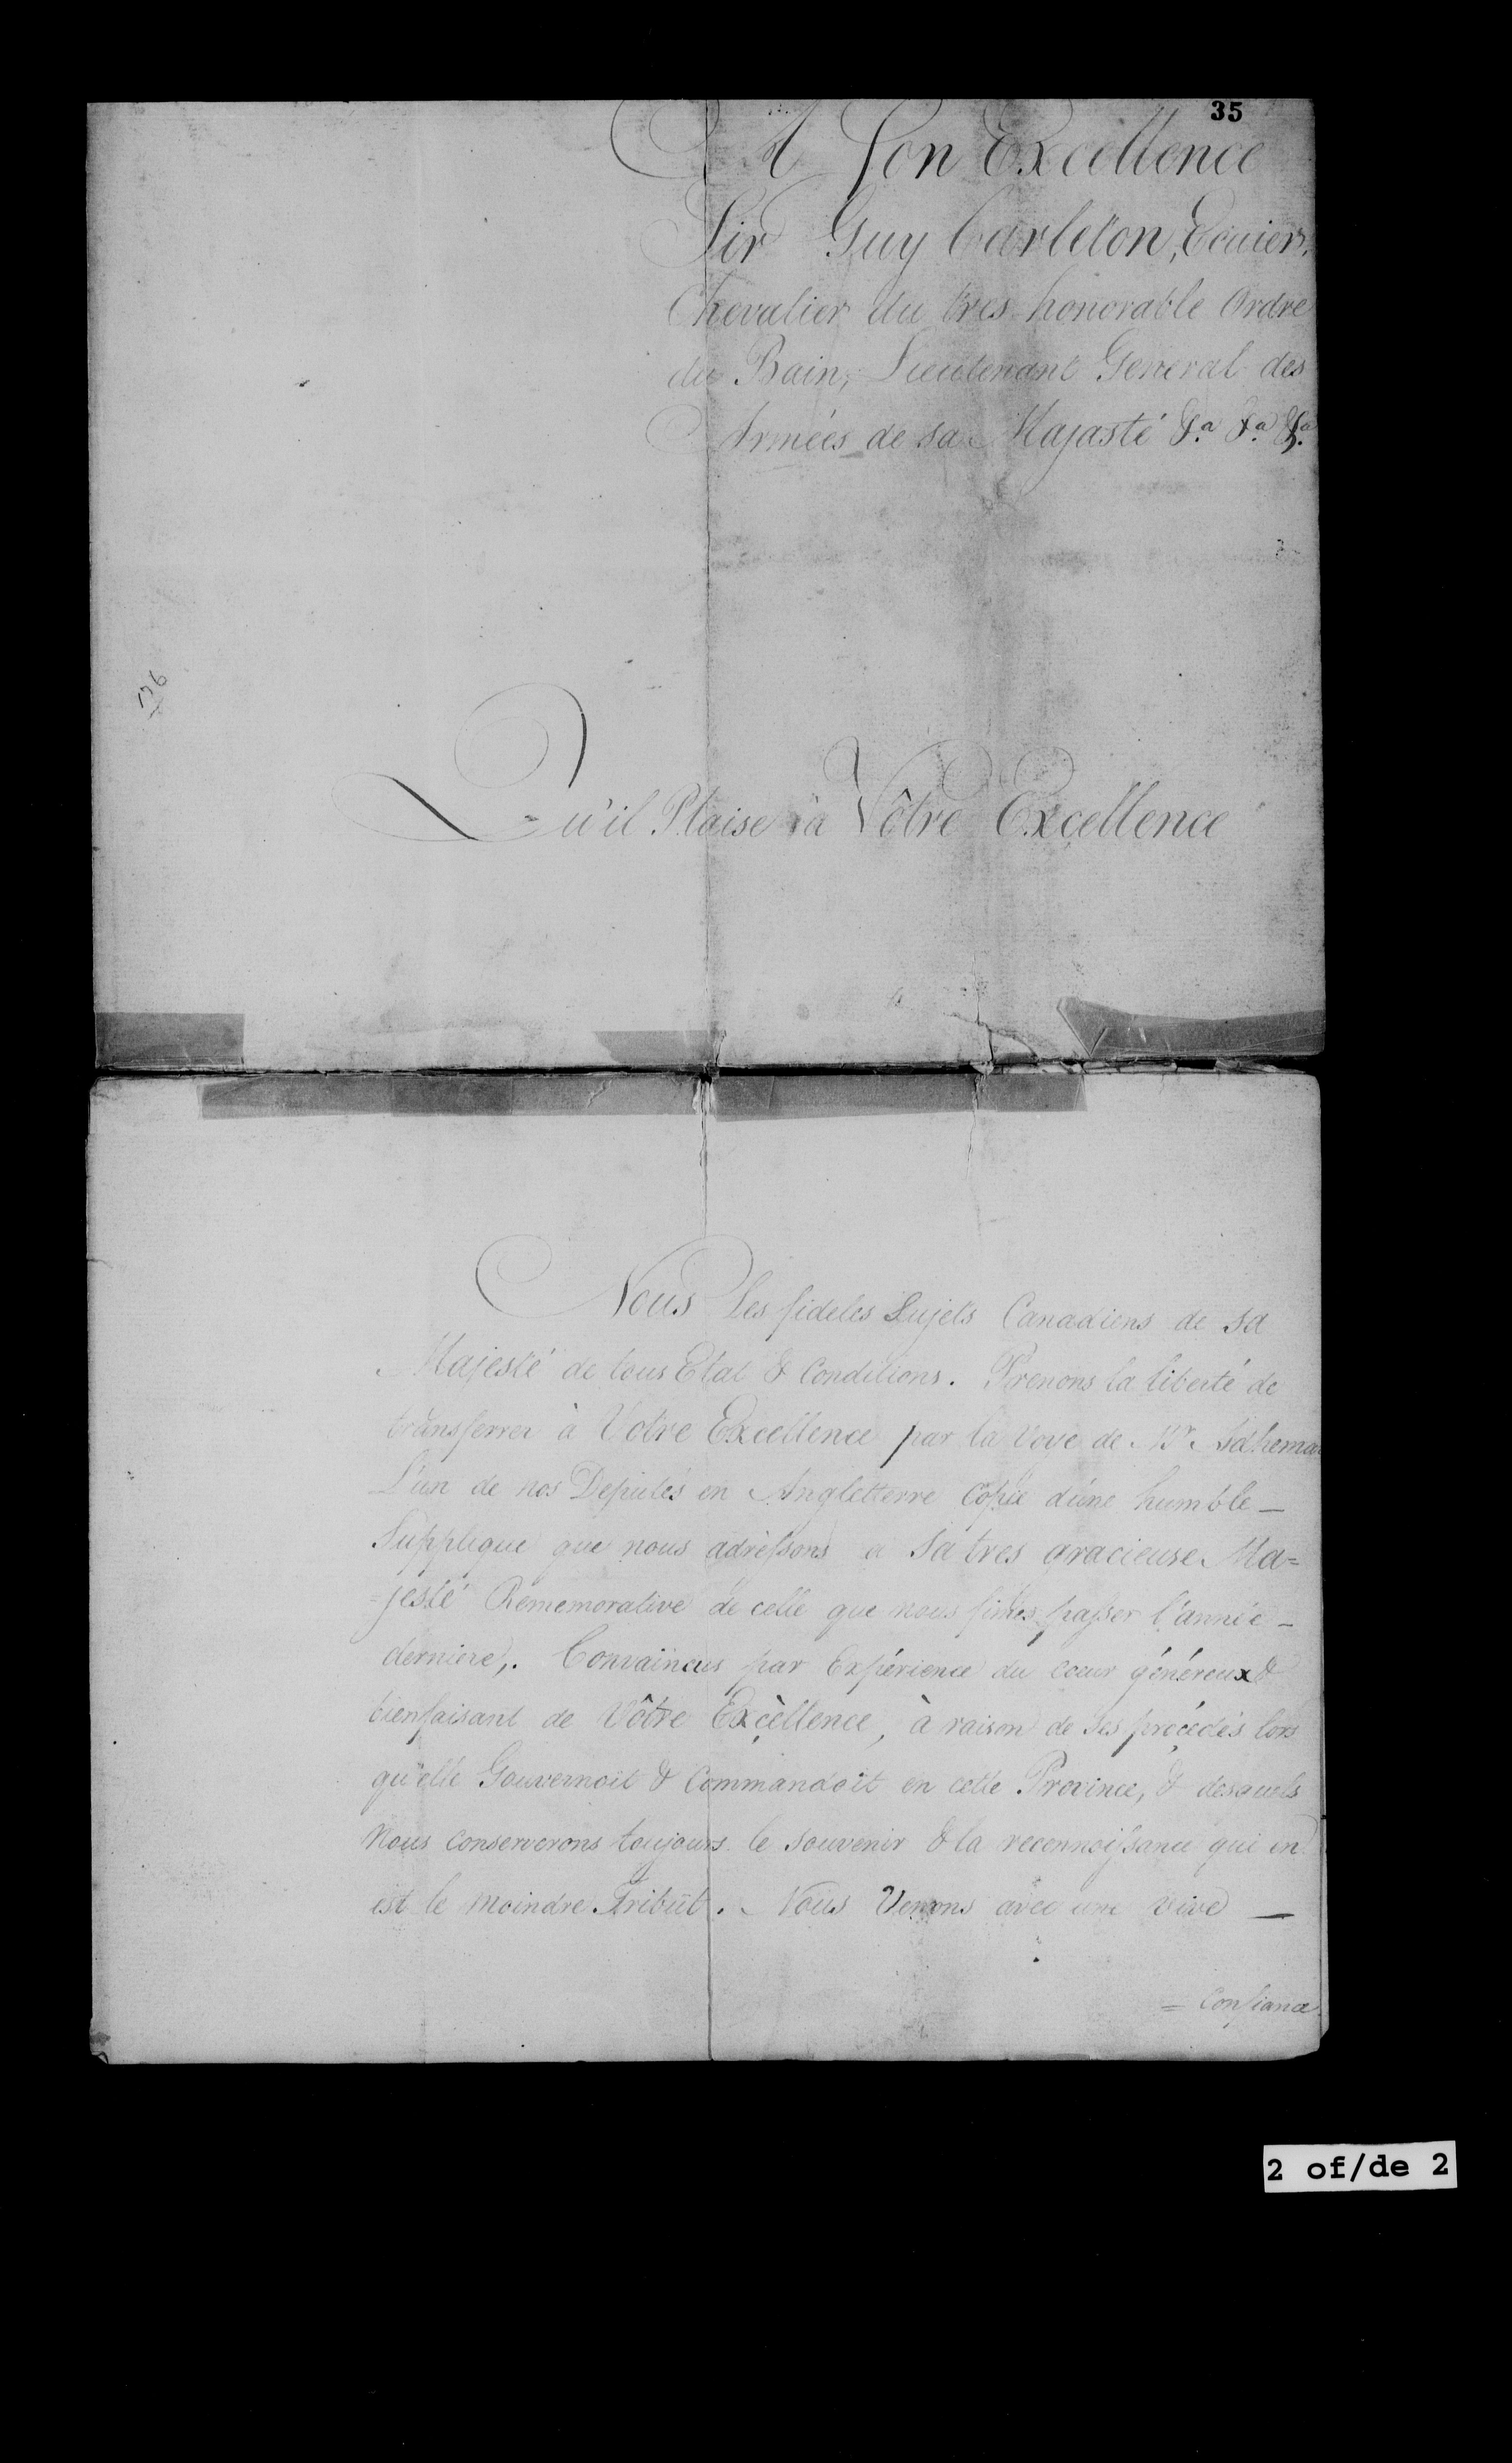 35
A Son Excellence
Sir Guy Carleton, Ecuier,
Chevalier du tres honorable Ordre
du Bain, Lieutenant General des
Armées de sa Majasté &.a &.a &.a
Qu'il Plaise à Vôtre Excellence
Nous Les fideles Sujets Canadiens de sa
Majesté de tous Etat & Conditions. Prenons la liberté de
transferrer à Votre Excellence par la voye de Mr. Adhemar
L'un de nos Deputés en Angletterre Copie d'une humble —
Supplique que nous adressons a Sa tres gracieuse Ma=
=jesté Rememorative de celle que nous fimes passer l'année —
derniere,. Convaincus par Expérience du coeur généreux &
bienfaisant de Vôtre Excellence, à raison de ses procédés lors
qu'elle Gouvernoit & Commandoit en cette Province, & desquels
Nous conserverons toujours le souvenir & la reconnoissance qui en
est le moindre Tribut. Nous Venons avec une vive —
= Confiance
2 of/de 2